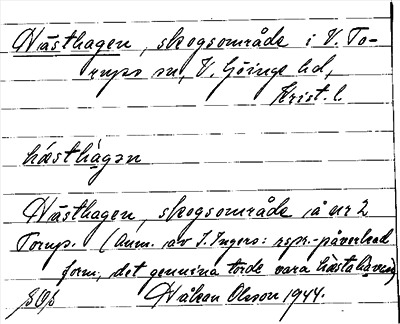 Hästhagen, skogsområde i V. To-
rups sn, V. Göinge hd,
Krist. l.
hästhagən
Hästhagen, skogsområde å nr 2
Torup. (Anm. av I. Ingers: rspr.-påverkad
form, det genuina torde vara hästahaven)
Håkan Olsson 1944.